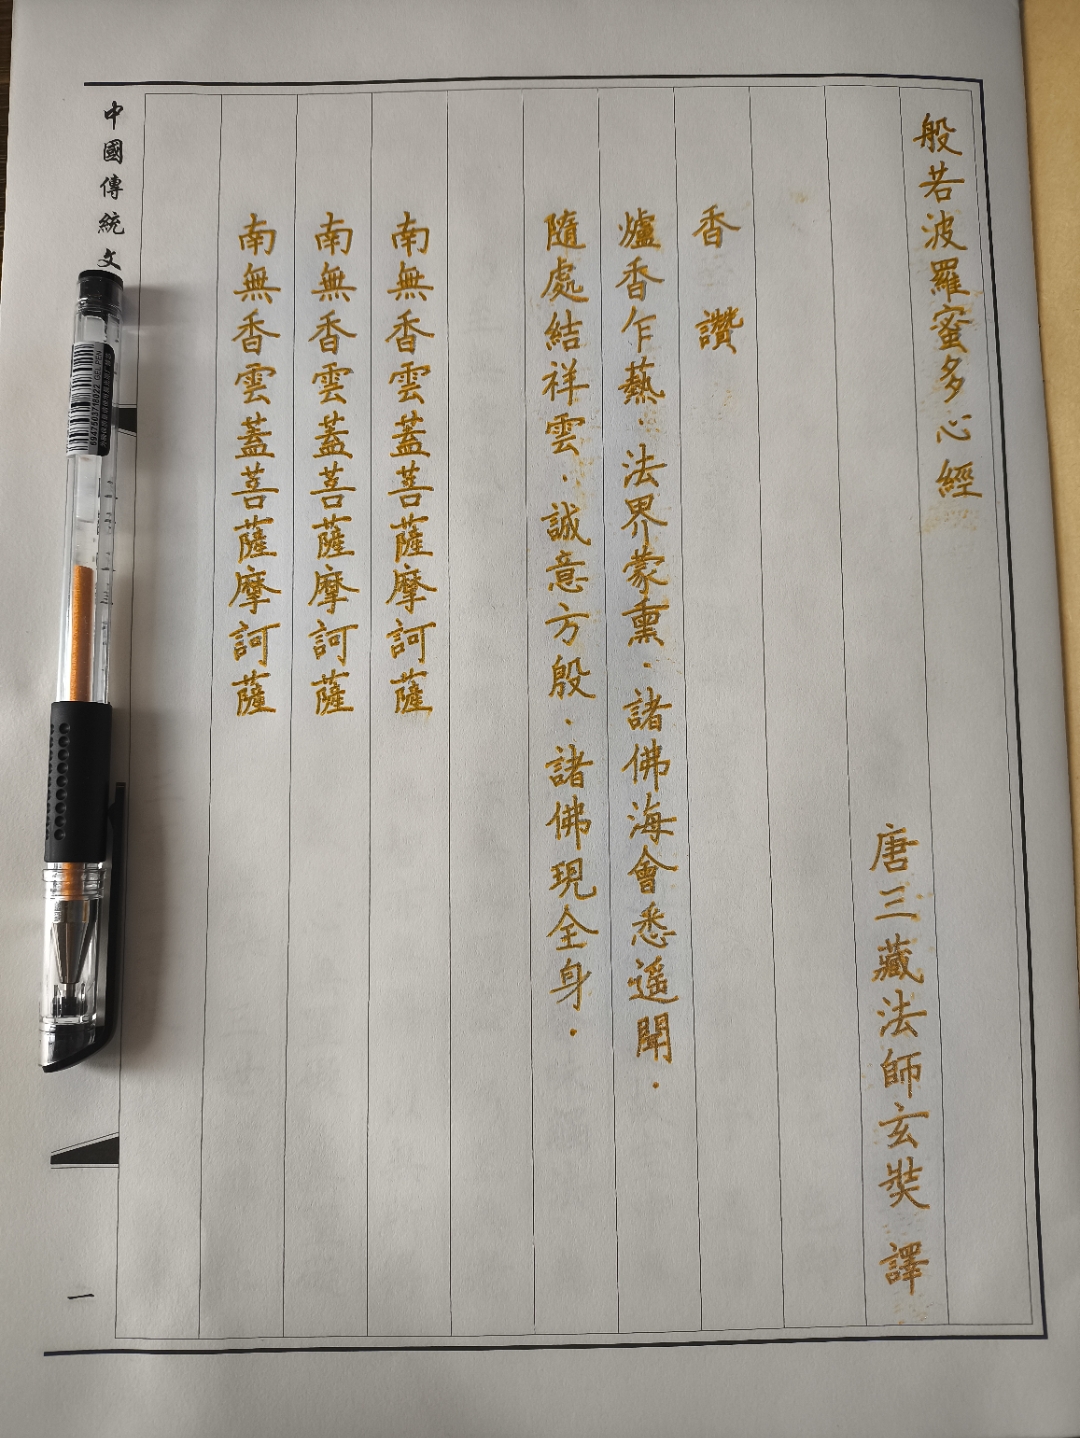 般若波羅蜜多心經
唐三藏法師玄奘 譯
香 讚
爐香乍爇．法界蒙熏．諸佛海會悉遥聞．
隨處結祥雲．誠意方殷．諸佛現全身．
南無香雲蓋菩薩摩訶薩
南無香雲蓋菩薩摩訶薩
南無香雲蓋菩薩摩訶薩
中國傳統文
一